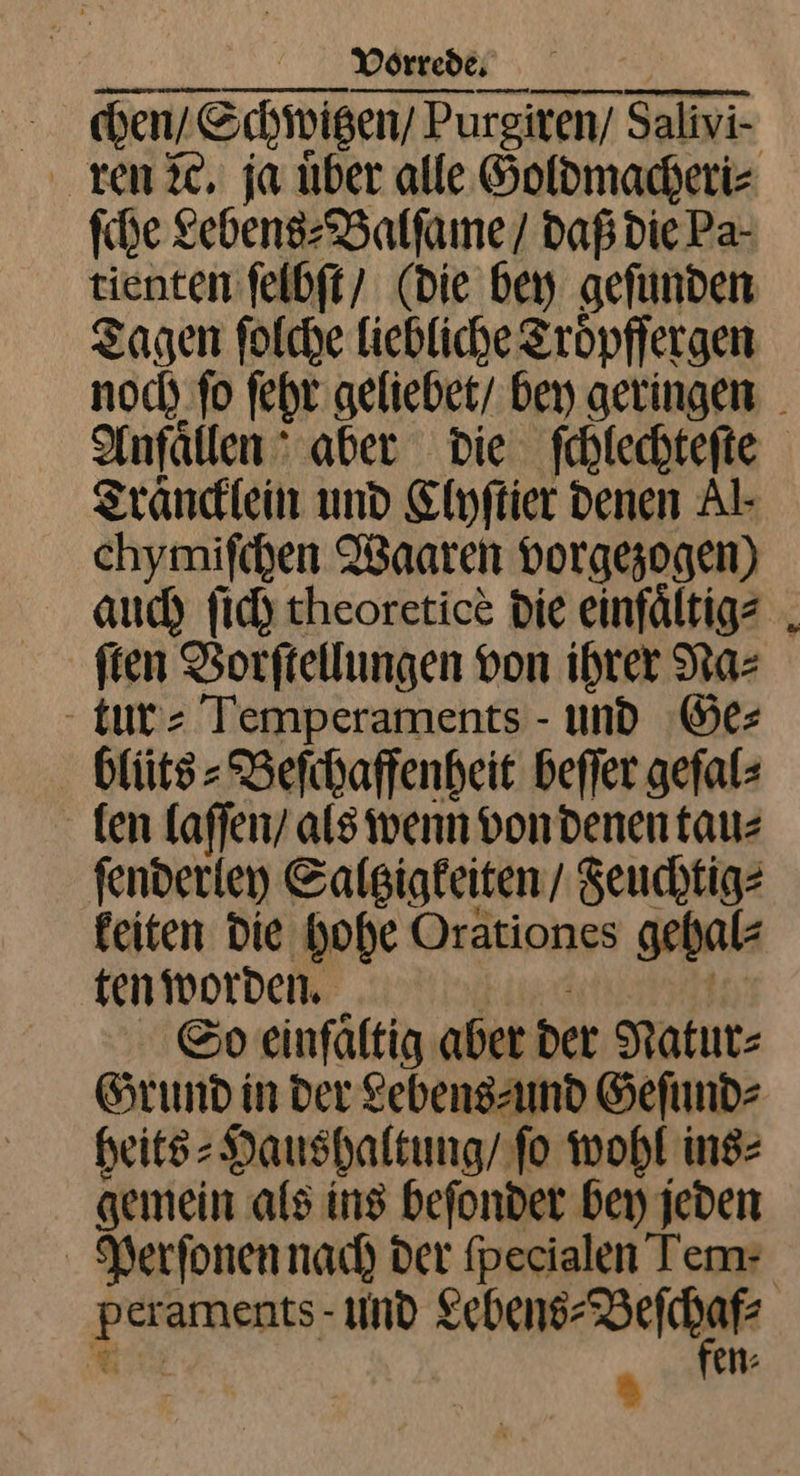 Vorrede.
chen/ Schwitzen/ Purgiren/ Salivi-
ren ꝛc. ja uͤber alle Goldmacheri⸗
ſche Lebens⸗Balſame / daß die Pa-
tienten ſelbſt / (die bey geſunden
Tagen ſolche liebliche Troͤpffergen
noch ſo ſehr geliebet/ bey geringen
Anfaͤllen aber die ſchlechteſte
Traͤncklein und Clyſtier denen Al-
chymiſchen Waaren vorgezogen)
auch ſich theoreticè die einfaͤltig⸗
ſten Vorſtellungen von ihrer Na⸗
tur⸗ Temperaments - und Ge⸗
bluͤts⸗Beſchaffenheit beſſer gefal⸗
len laſſen/ als wenn von denen tau⸗
ſenderley Saltzigkeiten / Feuchtig⸗
keiten die hohe Orationes gehal⸗
ten worden.
So einfaͤltig aber der Natur⸗
Grund in der Lebens⸗und Geſund⸗
heits⸗Haushaltung/ ſo wohl ins⸗
gemein als ins beſonder bey jeden
Perſonen nach der ſpecialen Tem-
peraments - und Lebens⸗Beſchaf⸗
fen⸗